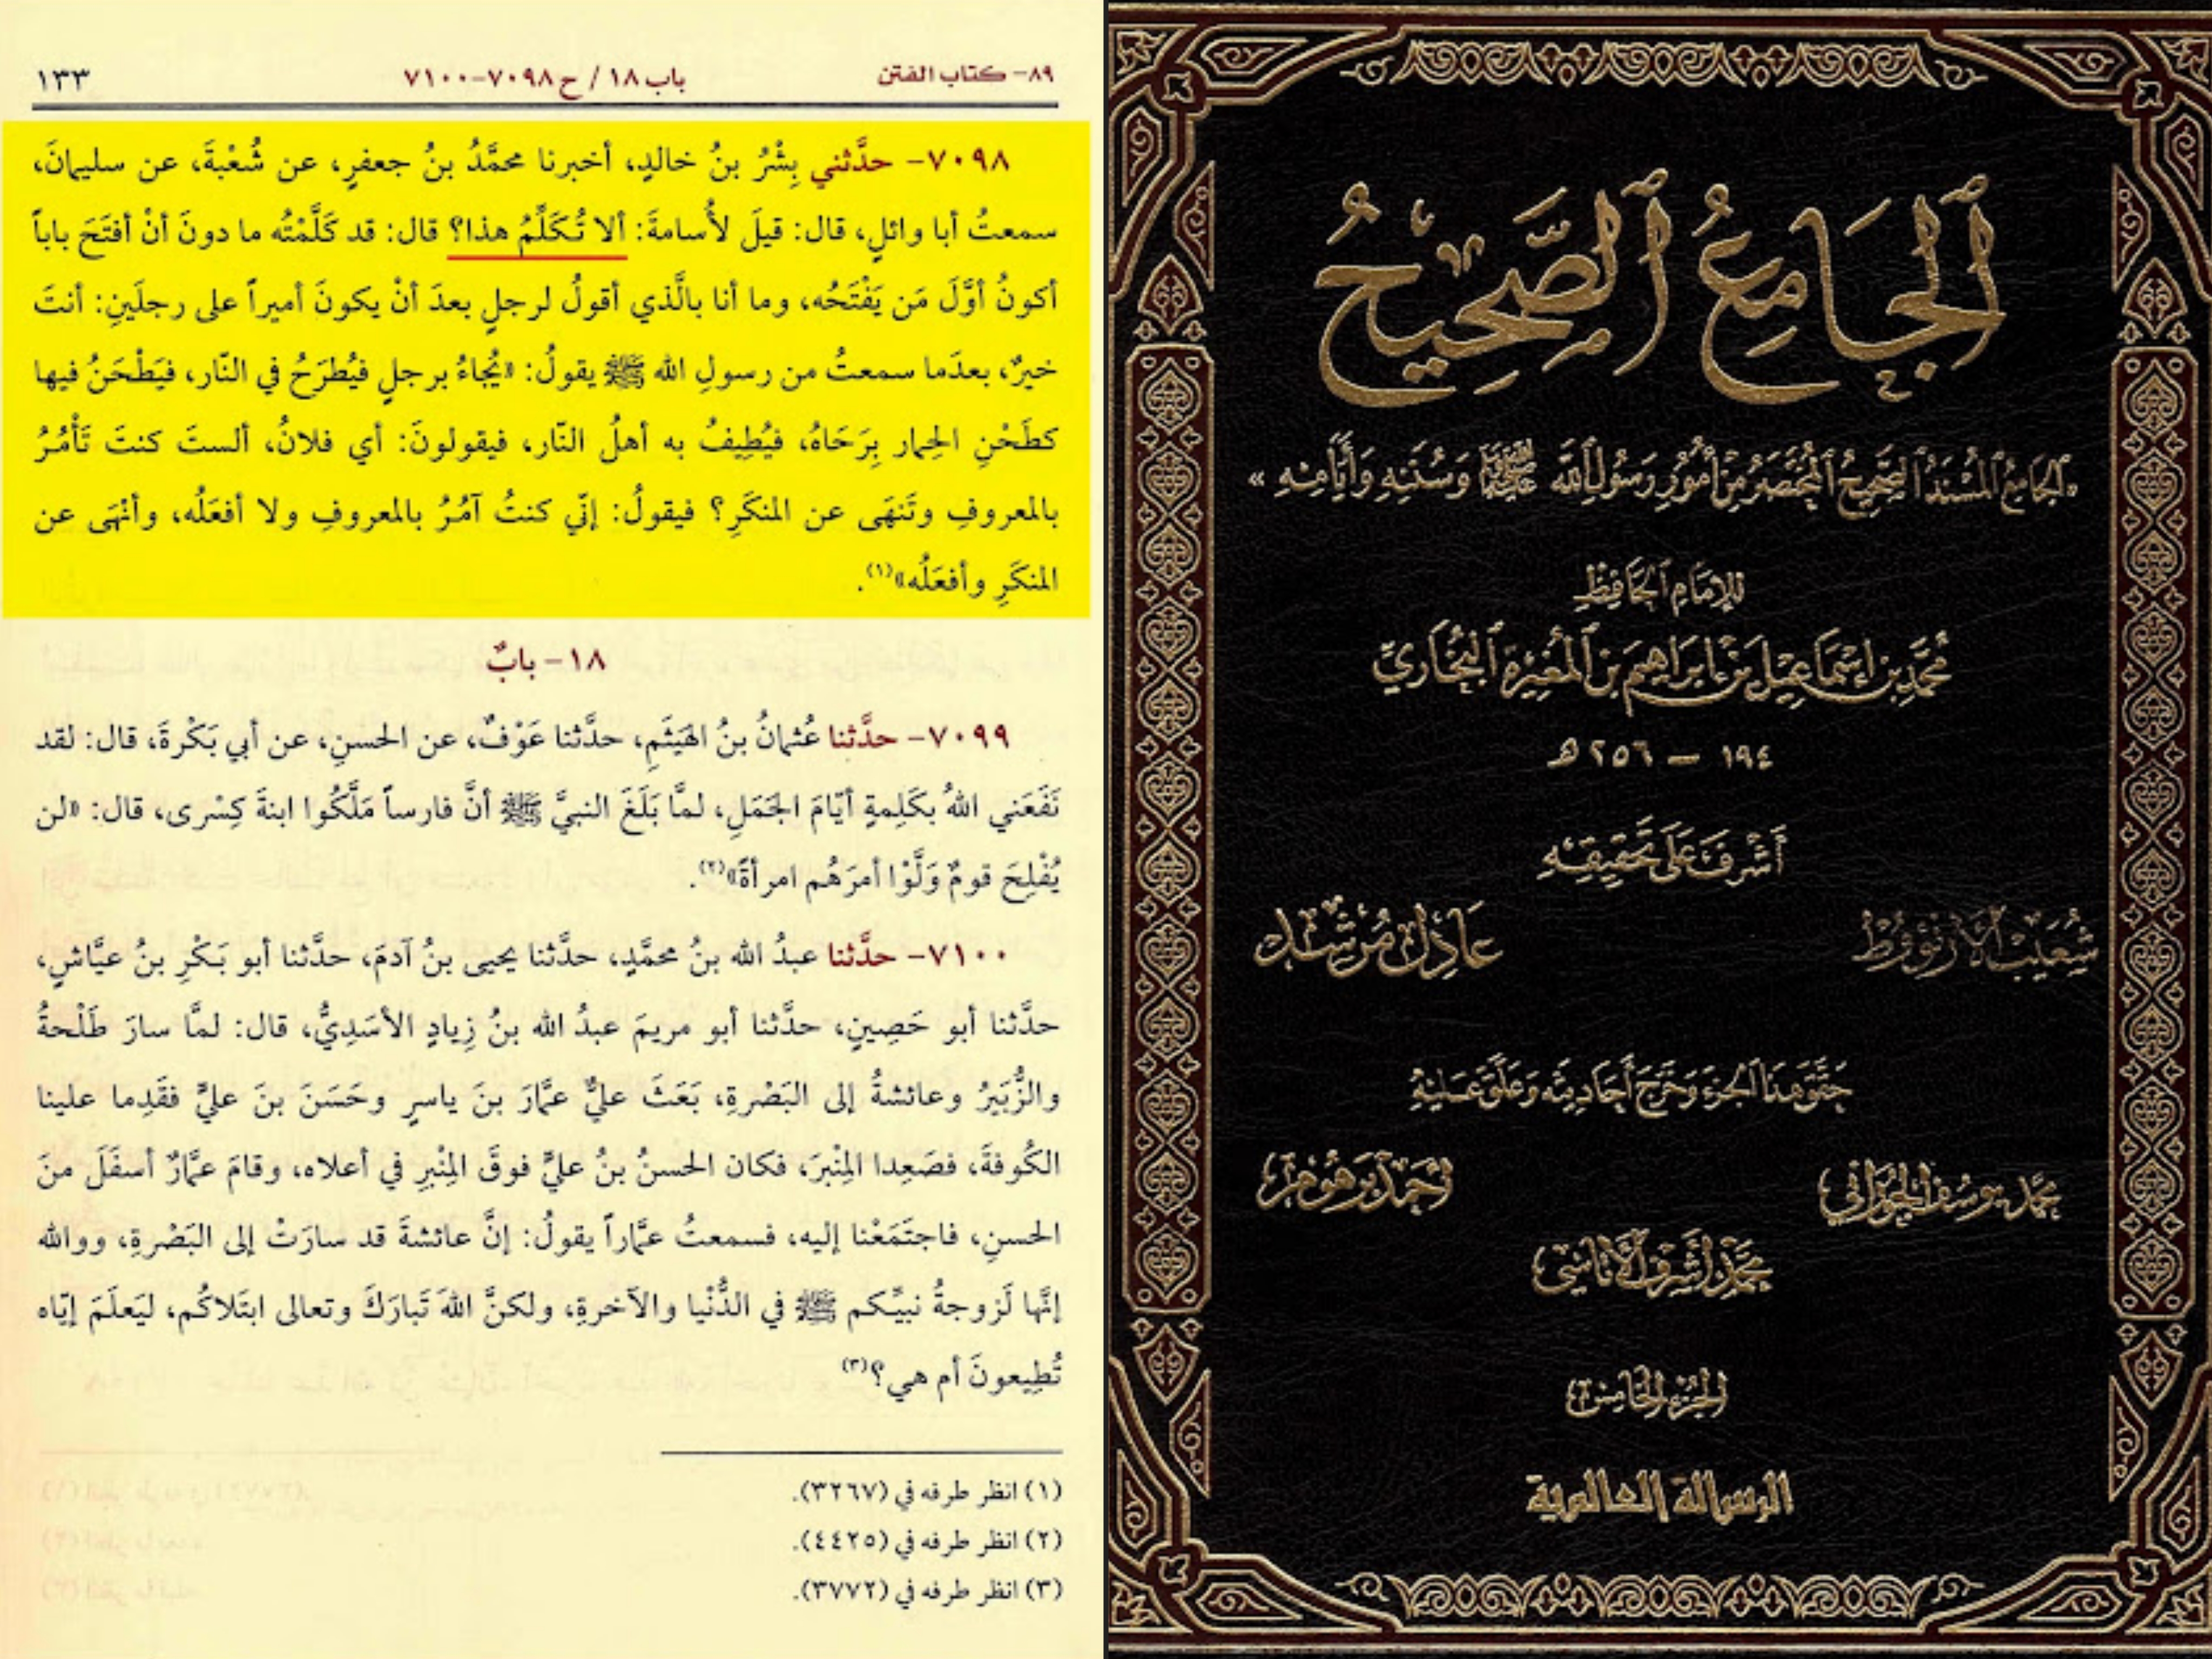 ٨٩- كتاب الفتن
باب ١٨ / ح ٧٠٩٨-٧١٠٠
١٣٣
٧٠٩٨- حدَّثني بِشْرُ بنُ خالدٍ، أخبرنا محمَّدُ بنُ جعفرٍ، عن شُعْبةَ، عن سليمانَ،
سمعتُ أبا وائلٍ، قال: قيلَ لأُسامةَ: ألا تُكَلِّمُ هذا؟ قال: قد كَلَّمْتُه ما دونَ أنْ أفتَحَ باباً
أكونُ أوَّلَ مَن يَفْتَحُه، وما أنا بالَّذي أقولُ لرجلٍ بعدَ أنْ يكونَ أميراً على رجلَينِ: أنتَ
خيرٌ، بعدَما سمعتُ من رسولِ الله ﷺ يقولُ: «يُجاءُ برجلٍ فيُطرَحُ في النّار، فيَطْحَنُ فيها
كطَحْنِ الحِمار بِرَحَاهُ، فيُطِيفُ به أهلُ النّار، فيقولونَ: أي فلانُ، ألستَ كنتَ تَأْمُرُ
بالمعروفِ وتَنهَى عن المنكَرِ؟ فيقولُ: إنّي كنتُ آمُرُ بالمعروفِ ولا أفعَلُه، وأنْهَى عن
المنكَرِ وأفعَلُه»(١).
١٨- بابٌ
٧٠٩٩- حدَّثنا عُثمانُ بنُ الهَيثَمِ، حدَّثنا عَوْفٌ، عن الحسنِ، عن أبي بَكْرةَ، قال: لقد
نَفَعَني اللهُ بكَلِمةٍ أيّامَ الجَمَلِ، لمَّا بَلَغَ النبيَّ ﷺ أنَّ فارساً مَلَّكُوا ابنةَ كِسْرى، قال: «لن
يُفْلِحَ قومٌ وَلَّوْا أمرَهُم امرأةً»(٢).
٧١٠٠- حدَّثنا عبدُ الله بنُ محمَّدٍ، حدَّثنا يحيى بنُ آدمَ، حدَّثنا أبو بَكْرِ بنُ عيَّاشٍ،
حدَّثنا أبو حَصِينٍ، حدَّثنا أبو مريمَ عبدُ الله بنُ زِيادٍ الأسَدِيُّ، قال: لمَّا سارَ طَلْحةُ
والزُّبَيرُ وعائشةُ إلى البَصْرةِ، بَعَثَ عليٌّ عمَّارَ بنَ ياسرٍ وحَسَنَ بنَ عليٍّ فقَدِما علينا
الكُوفةَ، فصَعِدا المِنْبرَ، فكان الحسنُ بنُ عليٍّ فوقَ المِنْبرِ في أعلاه، وقامَ عمَّارٌ أسفَلَ منَ
الحسنِ، فاجتَمَعْنا إليه، فسمعتُ عمَّاراً يقولُ: إنَّ عائشةَ قد سارَتْ إلى البَصْرةِ، ووالله
إنَّها لَزوجةُ نبيِّكم ﷺ في الدُّنْيا والآخرةِ، ولكنَّ اللهَ تَبارَكَ وتعالى ابتَلاكُم، ليَعلَمَ إيّاه
تُطِيعونَ أم هي؟(٣)
(١) انظر طرفه في (٣٢٦٧).
(٢) انظر طرفه في (٤٤٢٥).
(٣) انظر طرفه في (٣٧٧٢).
اَلْجَامِعُ اَلصَّحِيحُ
«اَلْجَامِعُ اَلْمُسْنَدُ اَلصَّحِيحُ اَلْمُخْتَصَرُ مِنْ أُمُورِ رَسُولِ اللَّهِ ﷺ وَسُنَنِهِ وَأَيَّامِهِ»
لِلإِمَامِ اَلْحَافِظِ
مُحَمَّدِ بْنِ إِسْمَاعِيلَ بْنِ إِبْرَاهِيمَ بْنِ اَلْمُغِيرَةِ اَلْبُخَارِيِّ
١٩٤ - ٢٥٦ هـ
أَشْرَفَ عَلَى تَحْقِيقِهِ
شُعَيْبُ الأَرْنَؤُوطُ
عَادِلُ مُرْشِدُ
حَقَّقَ هَذَا الجُزْءَ وَخَرَّجَ أَحَادِيثَهُ وَعَلَّقَ عَلَيْهِ
مُحَمَّد يُوسُف الْحَوْرَانِي
أَحْمَد بَرْهُوم
مُحَمَّد أَشْرَف الأَتَاسِي
الجُزْءُ الخَامِسُ
الرسالة العالمية